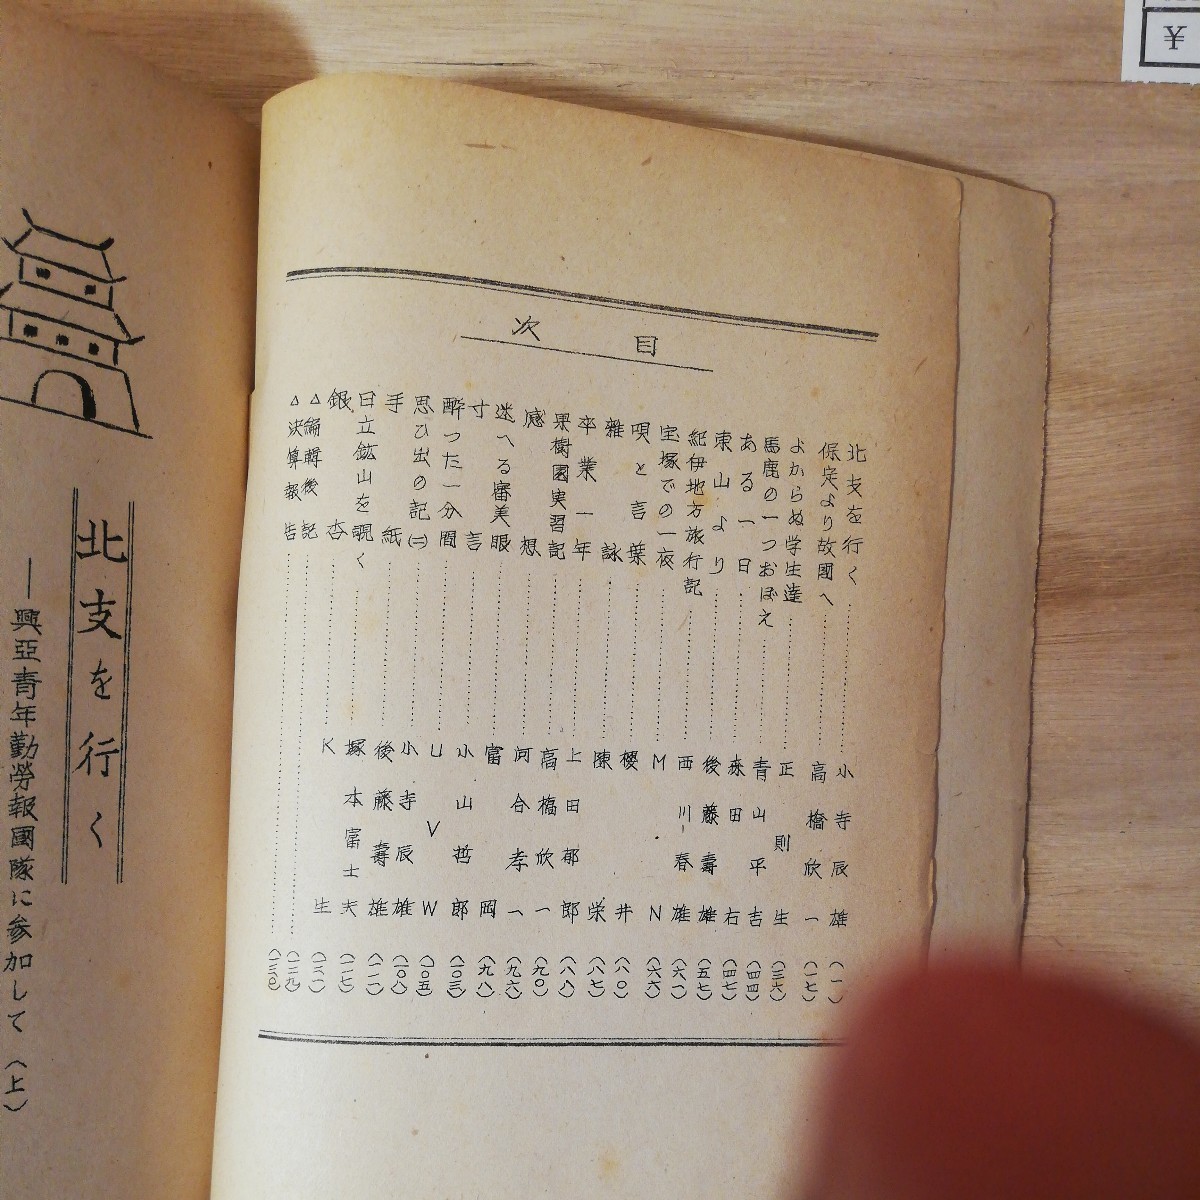 目次
北支を行く……小寺辰雄（一）
保定より故國へ……高橋欣一（一七）
よからぬ学生達……正則生（三六）
馬鹿の一つおぼえ……青山平吉（四四）
ある一日……森田右（四七）
東山より……後藤壽雄（五七）
紀伊地方旅行記……西川春雄（六一）
宝塚での一夜……MN（六六）
唄と言葉……櫻井（八〇）
雜詠……陳栄（八七）
卒業一年……上田郁郎（八八）
果樹園実習記……高橋欣一（九〇）
感想……河合孝一（九六）
迷へる審美眼……富岡（九八）
寸言……小山哲郎（一〇三）
酔つた一分間……UVW（一〇五）
思ひ出の記㈡……小寺辰雄（一〇八）
手紙……後藤壽雄（一一一）
日立鉱山を覗く……塚本富士夫（一一七）
銀杏……K生（一二一）
△編輯後記……（一二九）
△決算報告……（一三〇）
北支を行く
―興亞青年勤勞報國隊に参加して（上）
¥